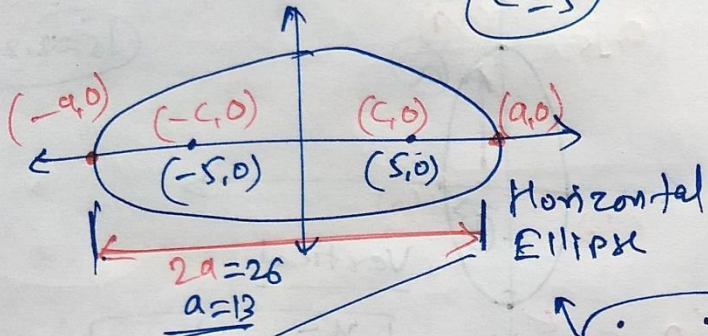 C=5
(-a,0) (-c,0) (c,0) (a,0)
(-5,0) (5,0)
Horizontal
Ellipse
2a=26
a=13